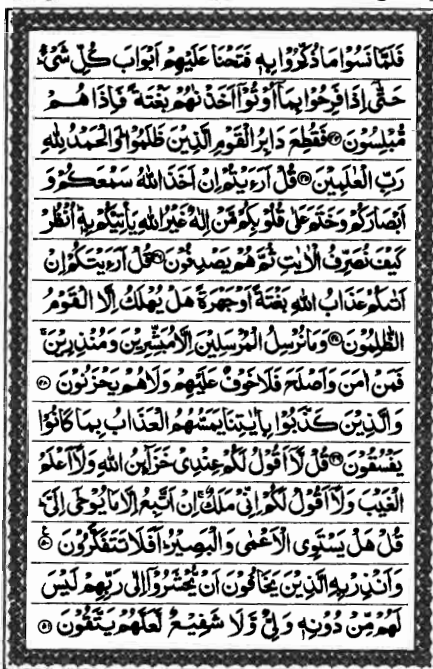 فَلَمَّا نَسُوْا مَا ذُكِّرُوْا بِهٖ فَتَحْنَا عَلَيْهِمْ اَبْوَابَ كُلِّ شَیْءٍ
حَتّٰۤى اِذَا فَرِحُوْا بِمَاۤ اُوْتُوْۤا اَخَذْنٰهُمْ بَغْتَةً فَاِذَا هُمْ
مُّبْلِسُوْنَ ۴۴ فَقُطِعَ دَابِرُ الْقَوْمِ الَّذِيْنَ ظَلَمُوْا وَالْحَمْدُ لِلّٰهِ
رَبِّ الْعٰلَمِيْنَ ۴۵ قُلْ اَرَءَيْتُمْ اِنْ اَخَذَ اللّٰهُ سَمْعَكُمْ وَ
اَبْصَارَكُمْ وَخَتَمَ عَلٰى قُلُوْبِكُمْ مَّنْ اِلٰهٌ غَيْرُ اللّٰهِ يَاْتِيْكُمْ بِهٖ اُنْظُرْ
كَيْفَ نُصَرِّفُ الْاٰيٰتِ ثُمَّ هُمْ يَصْدِفُوْنَ ۴۶ قُلْ اَرَءَيْتَكُمْ اِنْ
اَتٰىكُمْ عَذَابُ اللّٰهِ بَغْتَةً اَوْ جَهْرَةً هَلْ يُهْلَكُ اِلَّا الْقَوْمُ
الظّٰلِمُوْنَ ۴۷ وَمَا نُرْسِلُ الْمُرْسَلِيْنَ اِلَّا مُبَشِّرِيْنَ وَمُنْذِرِيْنَ
فَمَنْ اٰمَنَ وَاَصْلَحَ فَلَا خَوْفٌ عَلَيْهِمْ وَلَا هُمْ يَحْزَنُوْنَ ۴۸
وَالَّذِيْنَ كَذَّبُوْا بِاٰيٰتِنَا يَمَسُّهُمُ الْعَذَابُ بِمَا كَانُوْا
يَفْسُقُوْنَ ۴۹ قُلْ لَّاۤ اَقُوْلُ لَكُمْ عِنْدِیْ خَزَآئِنُ اللّٰهِ وَلَاۤ اَعْلَمُ
الْغَيْبَ وَلَاۤ اَقُوْلُ لَكُمْ اِنِّیْ مَلَكٌ اِنْ اَتَّبِعُ اِلَّا مَا يُوْحٰۤى اِلَیَّ
قُلْ هَلْ يَسْتَوِی الْاَعْمٰى وَالْبَصِيْرُ اَفَلَا تَتَفَكَّرُوْنَ ۵۰
وَاَنْذِرْ بِهِ الَّذِيْنَ يَخَافُوْنَ اَنْ يُّحْشَرُوْۤا اِلٰى رَبِّهِمْ لَيْسَ
لَهُمْ مِّنْ دُوْنِهٖ وَلِیٌّ وَّلَا شَفِيْعٌ لَّعَلَّهُمْ يَتَّقُوْنَ ۵۱